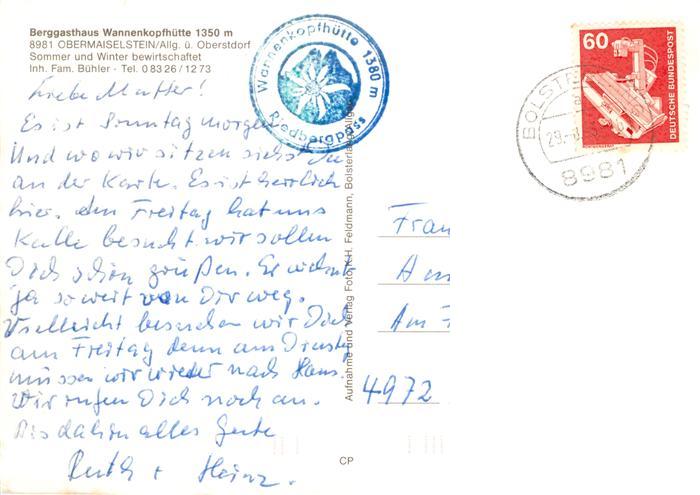 Berggasthaus Wannenkopfhütte 1350 m
8981 OBERMAISELSTEIN/Allg. ü. Oberstdorf
Sommer und Winter bewirtschaftet
Inh. Fam. Bühler - Tel. 0 83 26 / 12 73
Liebe Mutter!
Es ist Sonntag morgen
Und wo wir sitzen siehst Du
an der Karte. Es ist herrlich
hier. Am Freitag hat uns
Kalle besucht wir sollen
Dich schön grüßen. Er wohnt
ja so weit von Dir weg.
Vielleicht besuchen wir Dich
am Freitag denn am Dienstag
müssen wir wieder nach Haus.
Wir rufen Dich noch an.
Bis dahin alles Gute
Ruth + Heinz.
Wannenkopfhütte 1380 m
Riedbergpass
Aufnahme und Verlag Foto K.H. Feldmann, Bolsterlang/Allg.
CP
60
DEUTSCHE BUNDESPOST
BOLST
29.
8981
Frau
Am
4972